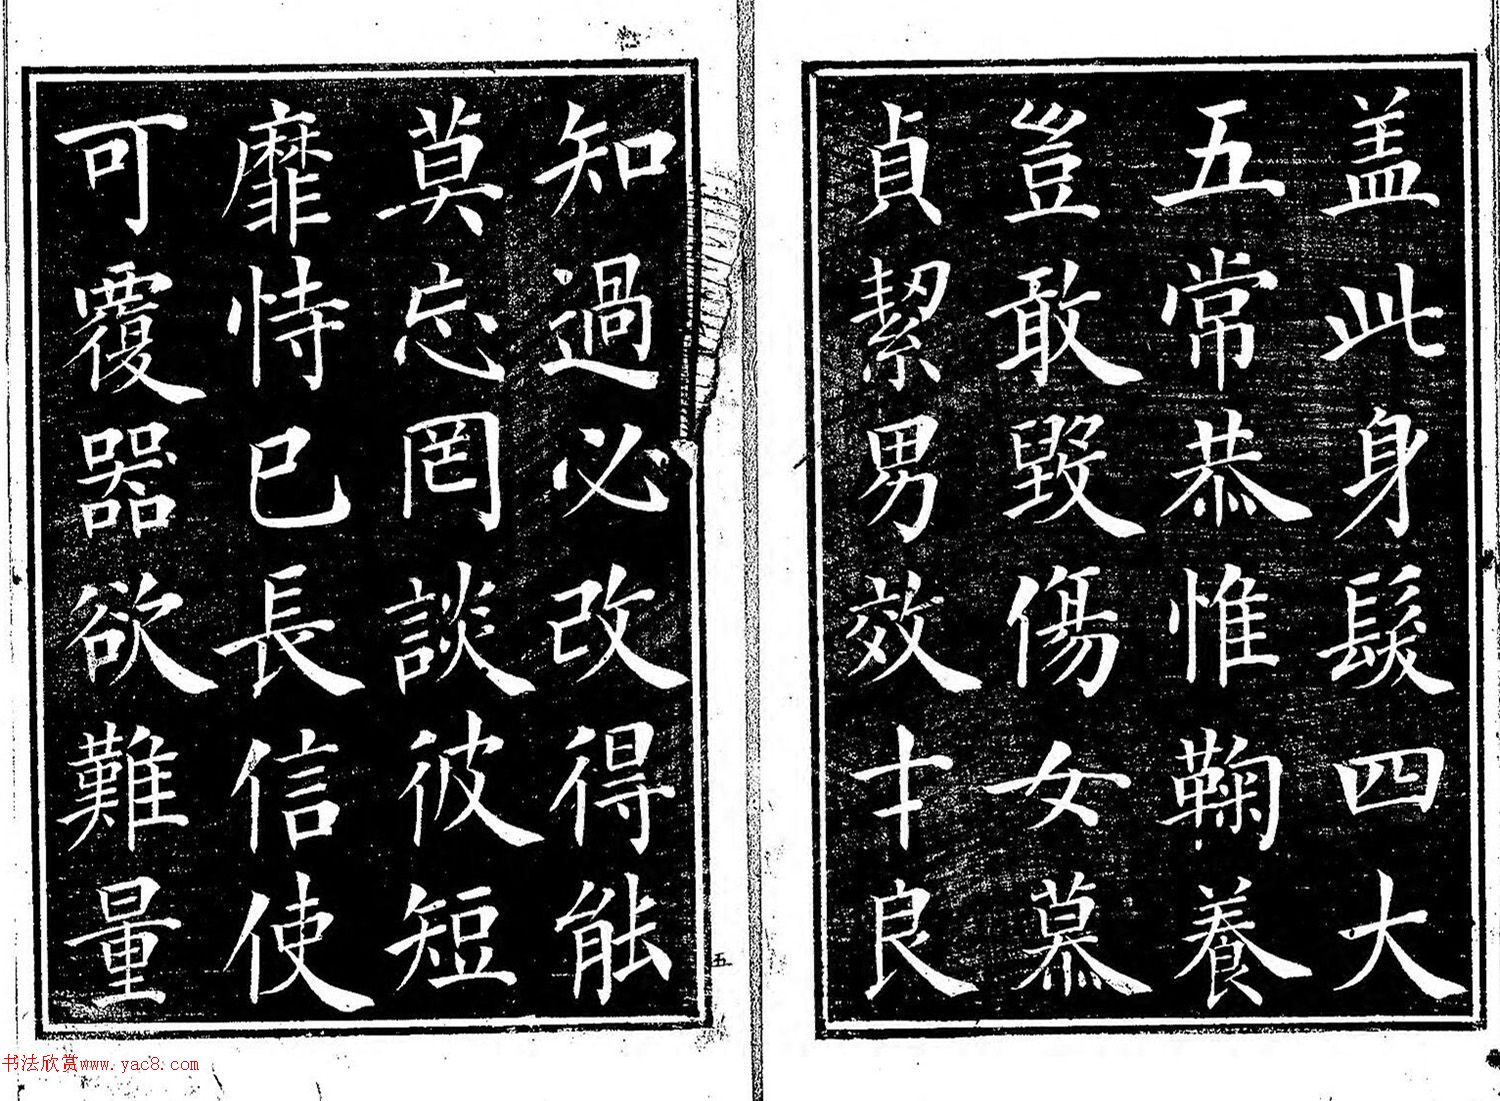 盖此身髮四大
五常恭惟鞠養
豈敢毀傷女慕
貞絜男效才良
知過必改得能
莫忘罔談彼短
靡恃已長信使
可覆器欲難量
五
书法欣赏www.yac8.com